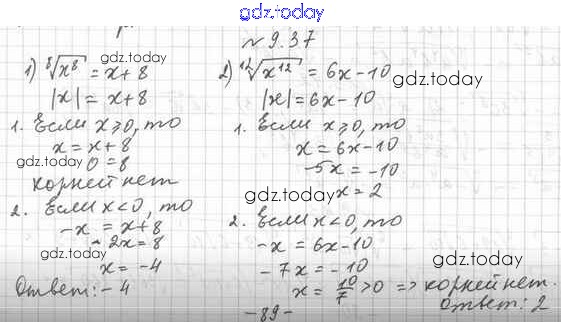 gdz.today
№9.37
1) ⁸√x⁸ = x+8
|x| = x+8
1. Если x⩾0, то
x = x+8
0 = 8
корней нет
2. Если x<0, то
-x = x+8
-2x = 8
x = -4
Ответ: -4
2) ¹²√x¹² = 6x-10
|x| = 6x-10
1. Если x⩾0, то
x = 6x-10
-5x = -10
x = 2
2. Если x<0, то
-x = 6x-10
-7x = -10
x = 10/7 >0 => корней нет.
Ответ: 2
-89-
gdz.today
gdz.today
gdz.today
gdz.today
gdz.today
gdz.today
gdz.today